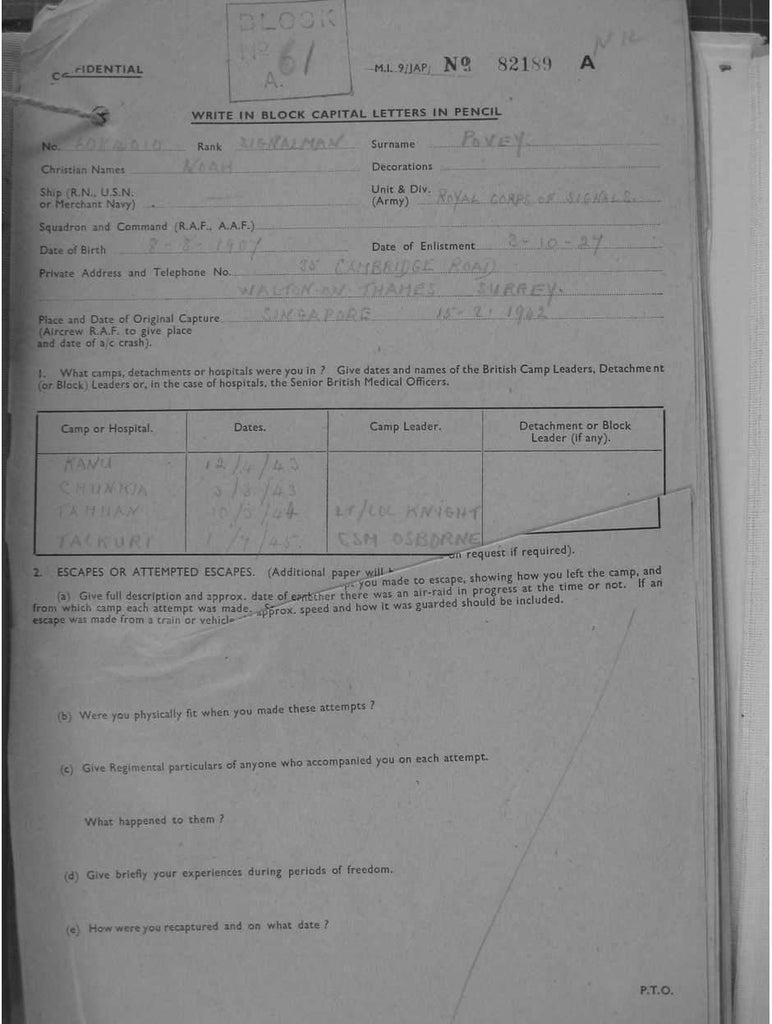 BLOCK
No 61
A.
CONFIDENTIAL
M.I. 9/JAP/ No 82189 A
WRITE IN BLOCK CAPITAL LETTERS IN PENCIL
No. Rank SIGNALMAN Surname POVEY.
Christian Names NOAH Decorations
Ship (R.N., U.S.N. or Merchant Navy) Unit & Div. (Army) ROYAL CORPS OF SIGNALS.
Squadron and Command (R.A.F., A.A.F.)
Date of Birth 8-8-1907 Date of Enlistment 3-10-27
Private Address and Telephone No. 35 CAMBRIDGE ROAD
WALTON-ON THAMES SURREY.
Place and Date of Original Capture SINGAPORE 15-2-1942
(Aircrew R.A.F. to give place
and date of a/c crash).
1. What camps, detachments or hospitals were you in ? Give dates and names of the British Camp Leaders, Detachment
(or Block) Leaders or, in the case of hospitals, the Senior British Medical Officers.
Camp or Hospital. Dates. Camp Leader. Detachment or Block Leader (if any).
KANU 12/4/43
CHUNKIA 3/8/43
TAHUAN 10/3/44 LT/COL KNIGHT
TALKURI 1/7/45. CSM OSBORNE
on request if required).
2. ESCAPES OR ATTEMPTED ESCAPES. (Additional paper will
(a) Give full description and approx. date of you made to escape, showing how you left the camp, and
from which camp each attempt was made, there was an air-raid in progress at the time or not. If an
escape was made from a train or vehicle approx. speed and how it was guarded should be included.
(b) Were you physically fit when you made these attempts ?
(c) Give Regimental particulars of anyone who accompanied you on each attempt.
What happened to them ?
(d) Give briefly your experiences during periods of freedom.
(e) How were you recaptured and on what date ?
P.T.O.